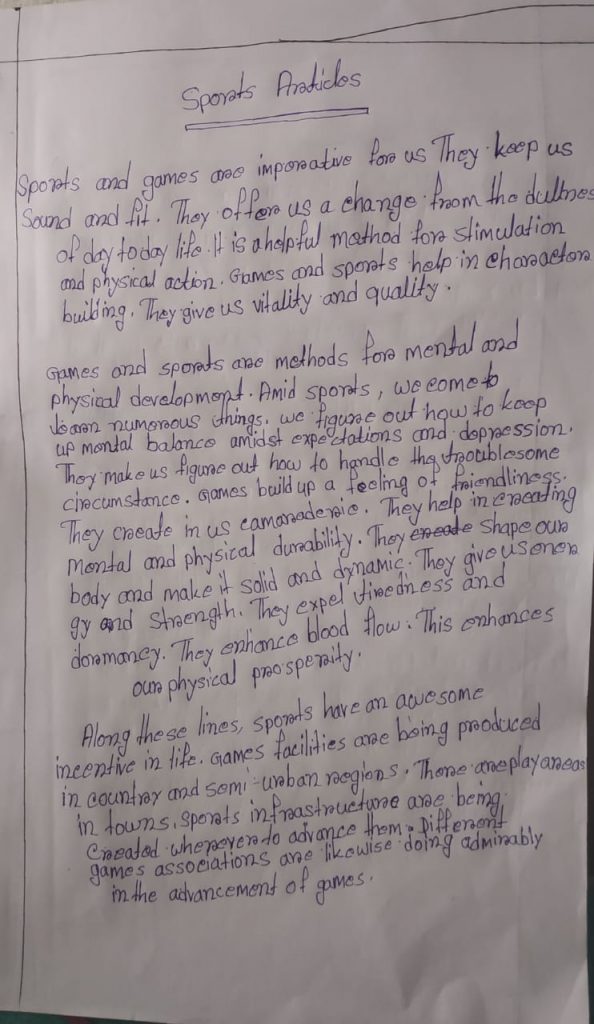 Sports Articles
Sports and games are imperative for us They keep us
Sound and fit. They offer us a change from the dullnes
of day today life. It is a helpful method for stimulation
and physical action. Games and sports help in character
building. They give us vitality and quality.
Games and sports are methods for mental and
physical development. Amid sports, we come to
learn numerous things. we figure out how to keep
up mental balance amidst expectations and depression.
They make us figure out how to handle the troublesome
circumstance. Games build up a feeling of friendliness.
They create in us camaraderie. They help in creating
mental and physical durability. They create shape our
body and make it solid and dynamic. They give us ener
gy and strength. They expel tiredness and
dormancy. They enhance blood flow. This enhances
our physical prosperity.
Along these lines, sports have an awesome
incentive in life. Games facilities are being produced
in country and semi-urban regions. There are play areas
in towns. sports infrastructure are being
Created wherever to advance them. Different
games associations are likewise doing admirably
in the advancement of games.